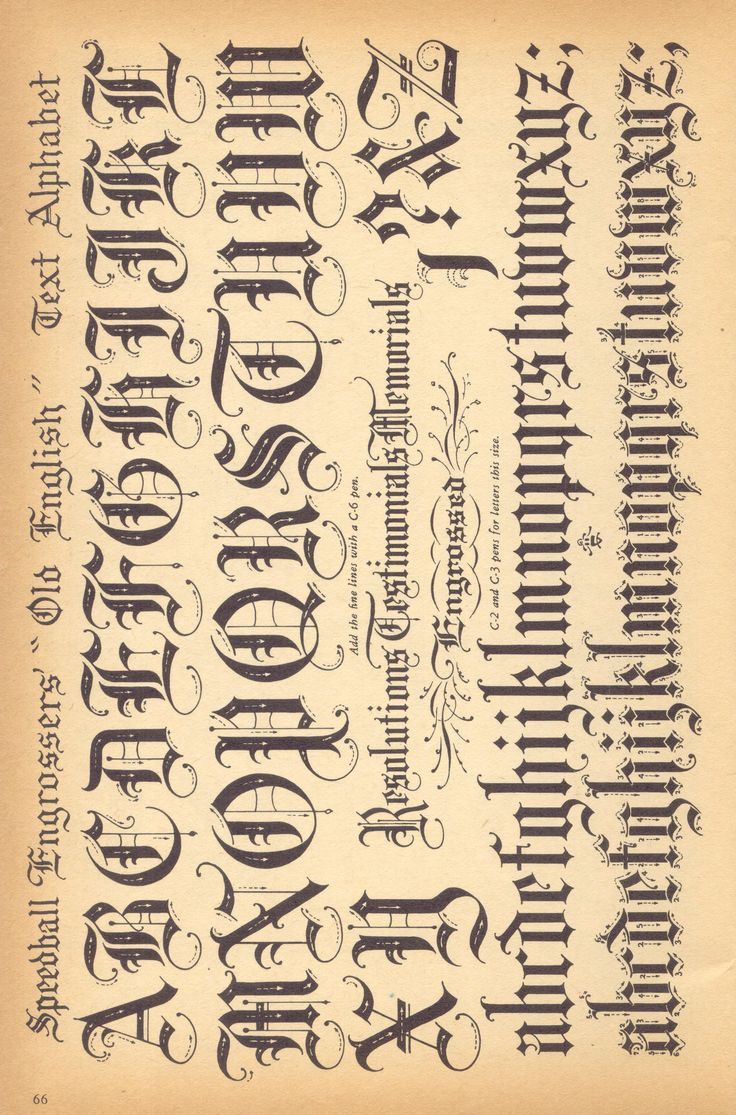 Speedball Engrossers' "Old English" Text Alphabet
ABCDEFGHIJKL
MNOPQRSTUVW
XYZ&?!
Add the fine lines with a C-6 pen.
Resolutions Testimonials Memorials
Engrossed
C-2 and C-3 pens for letters this size.
abcdefghijklmnopqrstuvwxyz;
abcdefghijklmnopqrstuvwxyz;
66